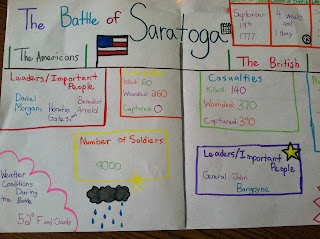 The Battle of
Saratoga
September
19th
1777
4 weeks
and
1 day
The Americans
The British
Leaders/Important
People
Daniel
Morgan,
Horatio
Gates,
and
Benedict
Arnold
Killed: 60
Wounded: 260
Captured: 0
Casualties
Killed: 140
Wounded: 370
Captured: 390
Number of Soldiers
9000
Leaders/Important
People
General John
Burgoyne
Weather
Conditions
During
the Battle
52° F and Cloudy